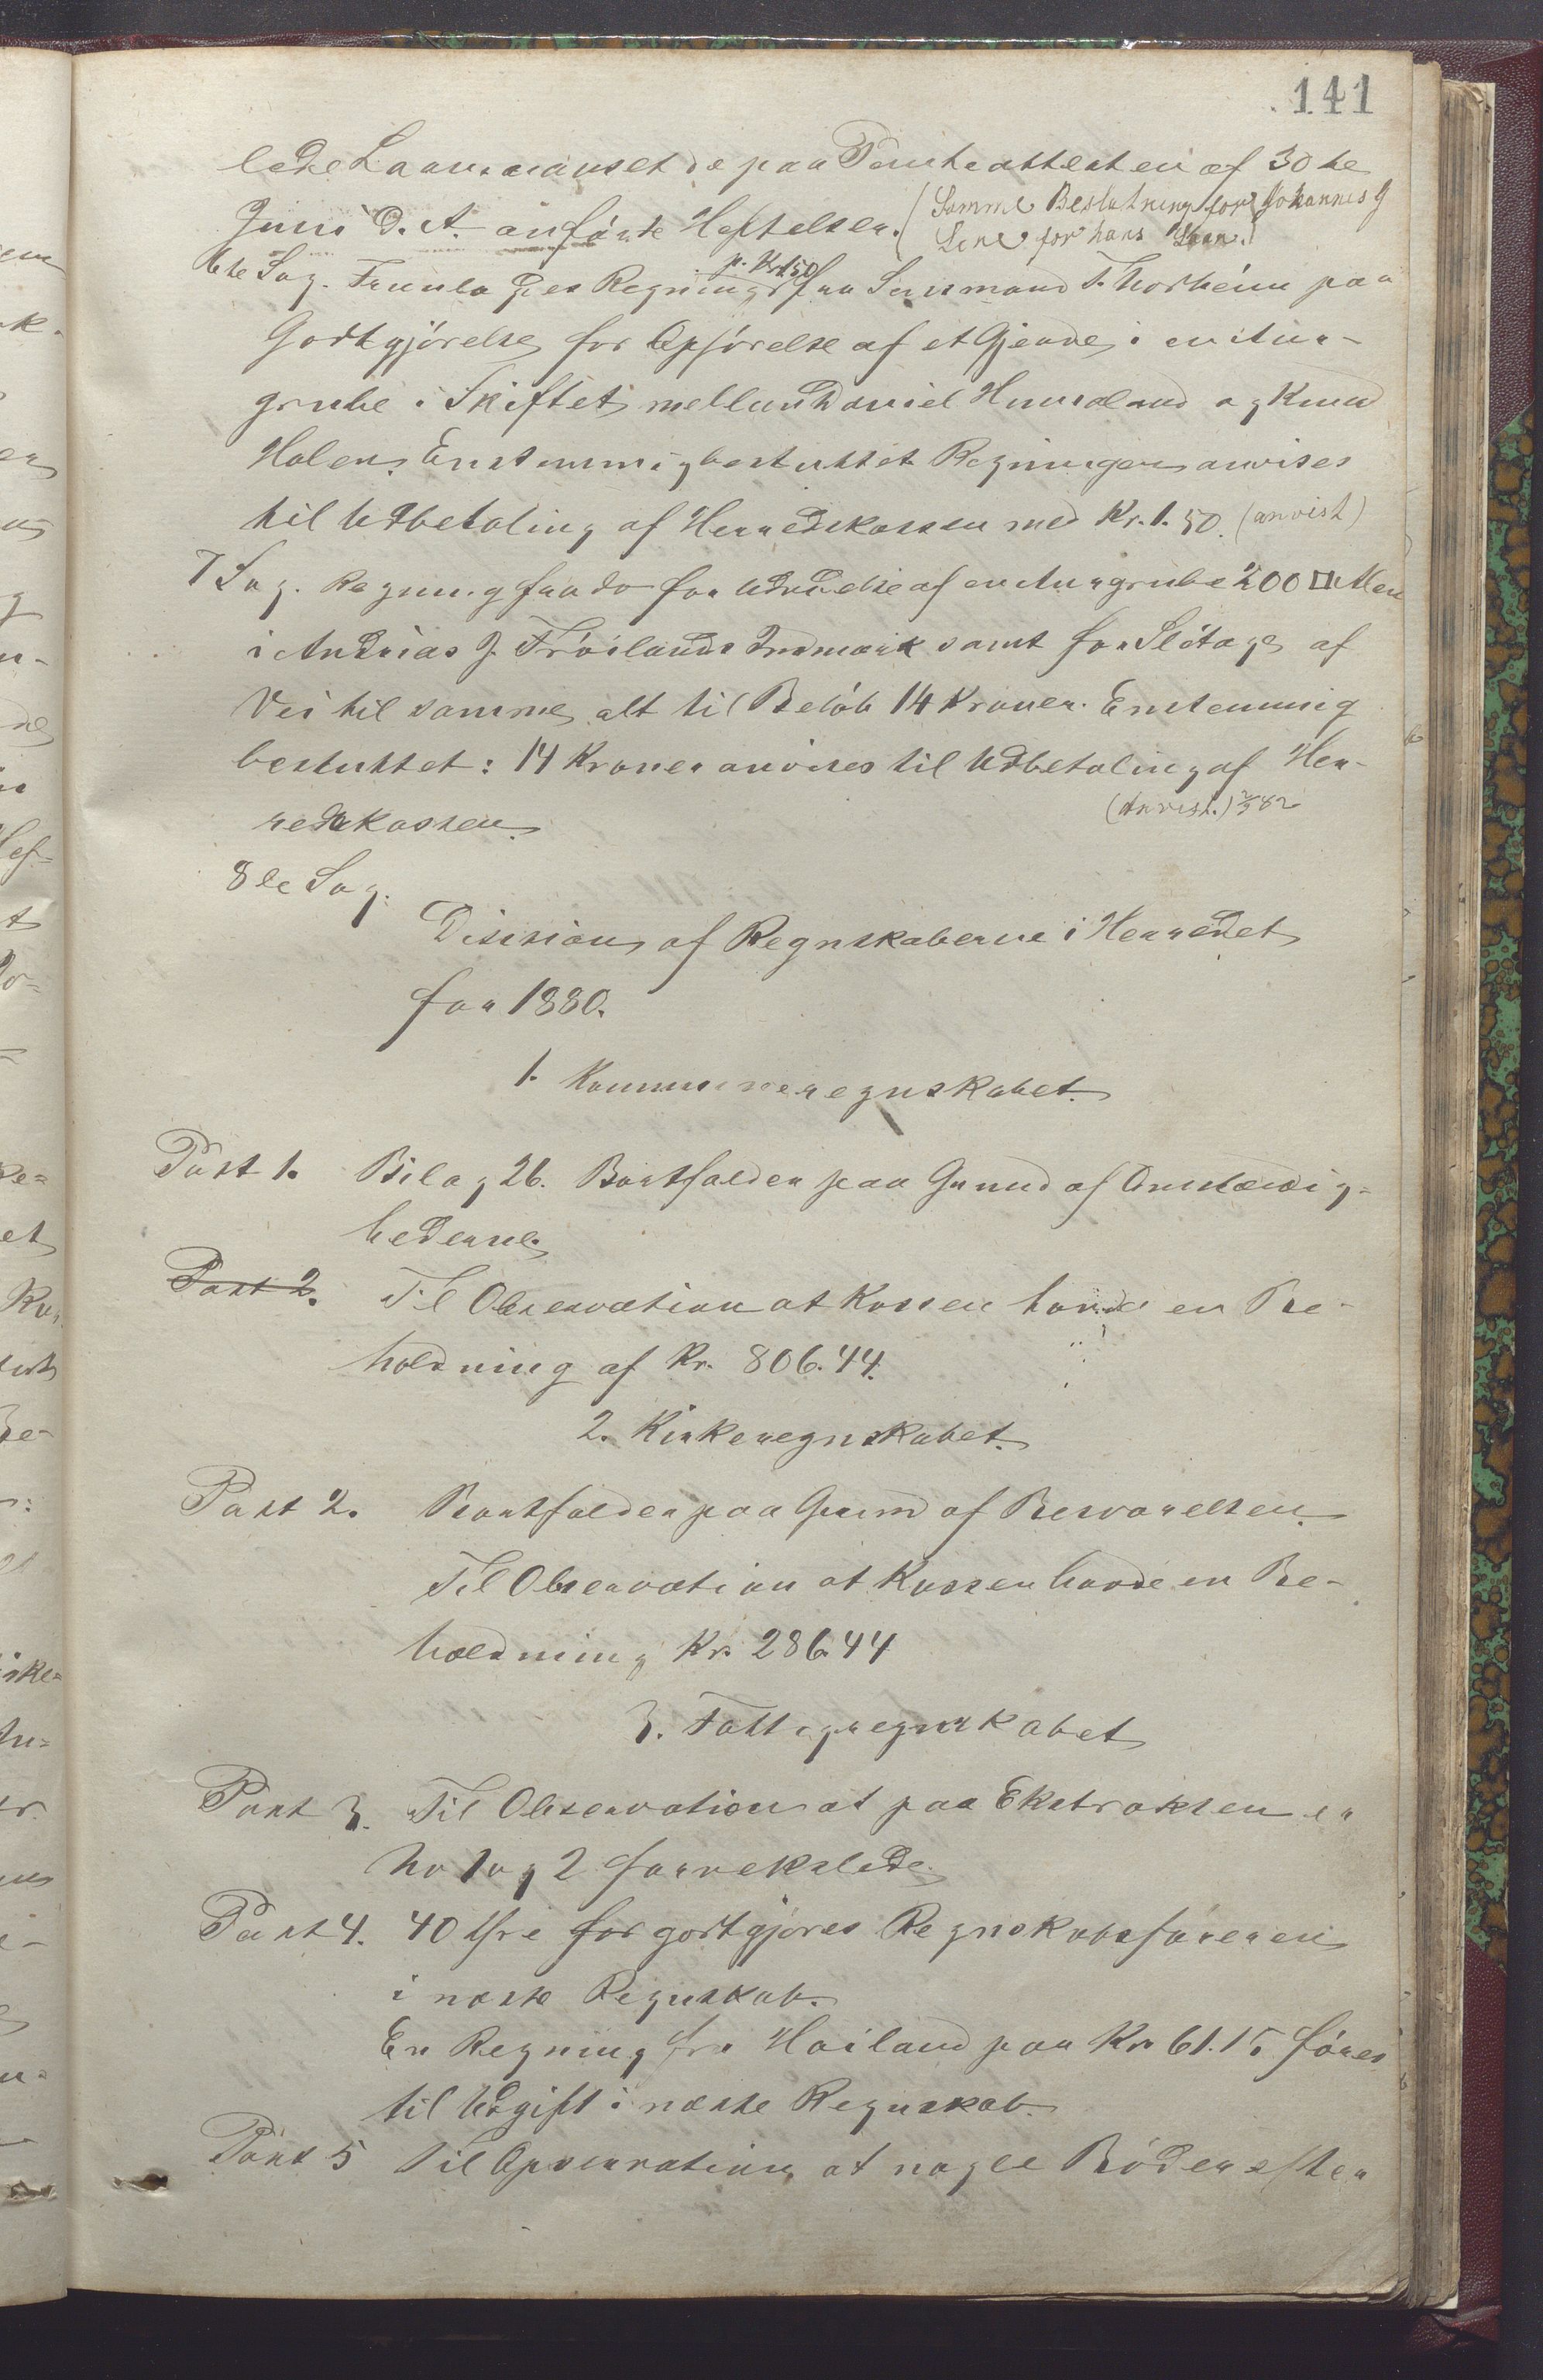 141
lede Laan uanset de paa Panteattesten af 30te
Juni d. A. anførte Heftelser. (Samme Beslutning for Johannes J
Lene for hans Laan.)
6te Sag. Fremlagdes Regning p. Kr 1.50 fra Lensmand T. Thorheim paa
Godtgjørelse for Opførelse af et Gjerde i en Aur-
grube i Skiftet mellem Daniel Hummeland og Knud
Holen. Enstemmig besluttet Regningen anvises
til Udbetaling af Herredskassen med Kr. 1.50. (anvist)
7 Sag. Regning fra do for Udvidelse af en Aurgrube 200 □ Alen
i Andrias J. Frøilands Indmark samt for Slitage af
Vei til samme, alt til Beløb 14 Kroner. Enstemmig
besluttet: 14 Kroner anvises til Udbetaling af Her-
(Anvist.) 2/3 82
redskassen.
8de Sag.
Desision af Regnskaberne i Herredet
for 1880.
1. Kommuneregnskabet.
Post 1. Bilag 26. Bortfalder paa Grund af Omstændig-
hederne.
Post 2. Til Observation at Kassen havde en Be-
holdning af Kr. 806.44.
2. Kirkeregnskabet.
Post 2. Bortfalder paa Grund af Besvarelsen.
Til Observation at Kassen havde en Be-
holdning Kr. 286.44
3. Fattigregnskabet
Post 3. Til Observation at paa Ekstrakten er
No 1 og 2 forvekslede.
Post 4. 40 Øre for godtgjøres Regnskabsføreren
i næste Regnskab.
En Regning fra Hoiland paa Kr. 61.15 føres
til Udgift i næste Regnskab.
Post 5 Til Opservation at nogle Bøder efter